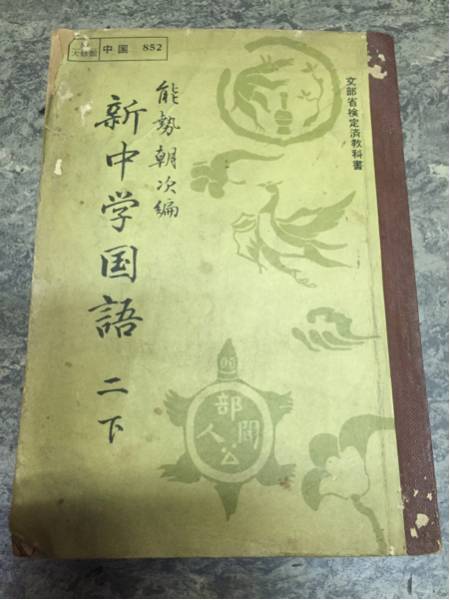 大修館
中国 852
文部省検定済教科書
能勢朝次編
新中学国語
二下
部間
人公